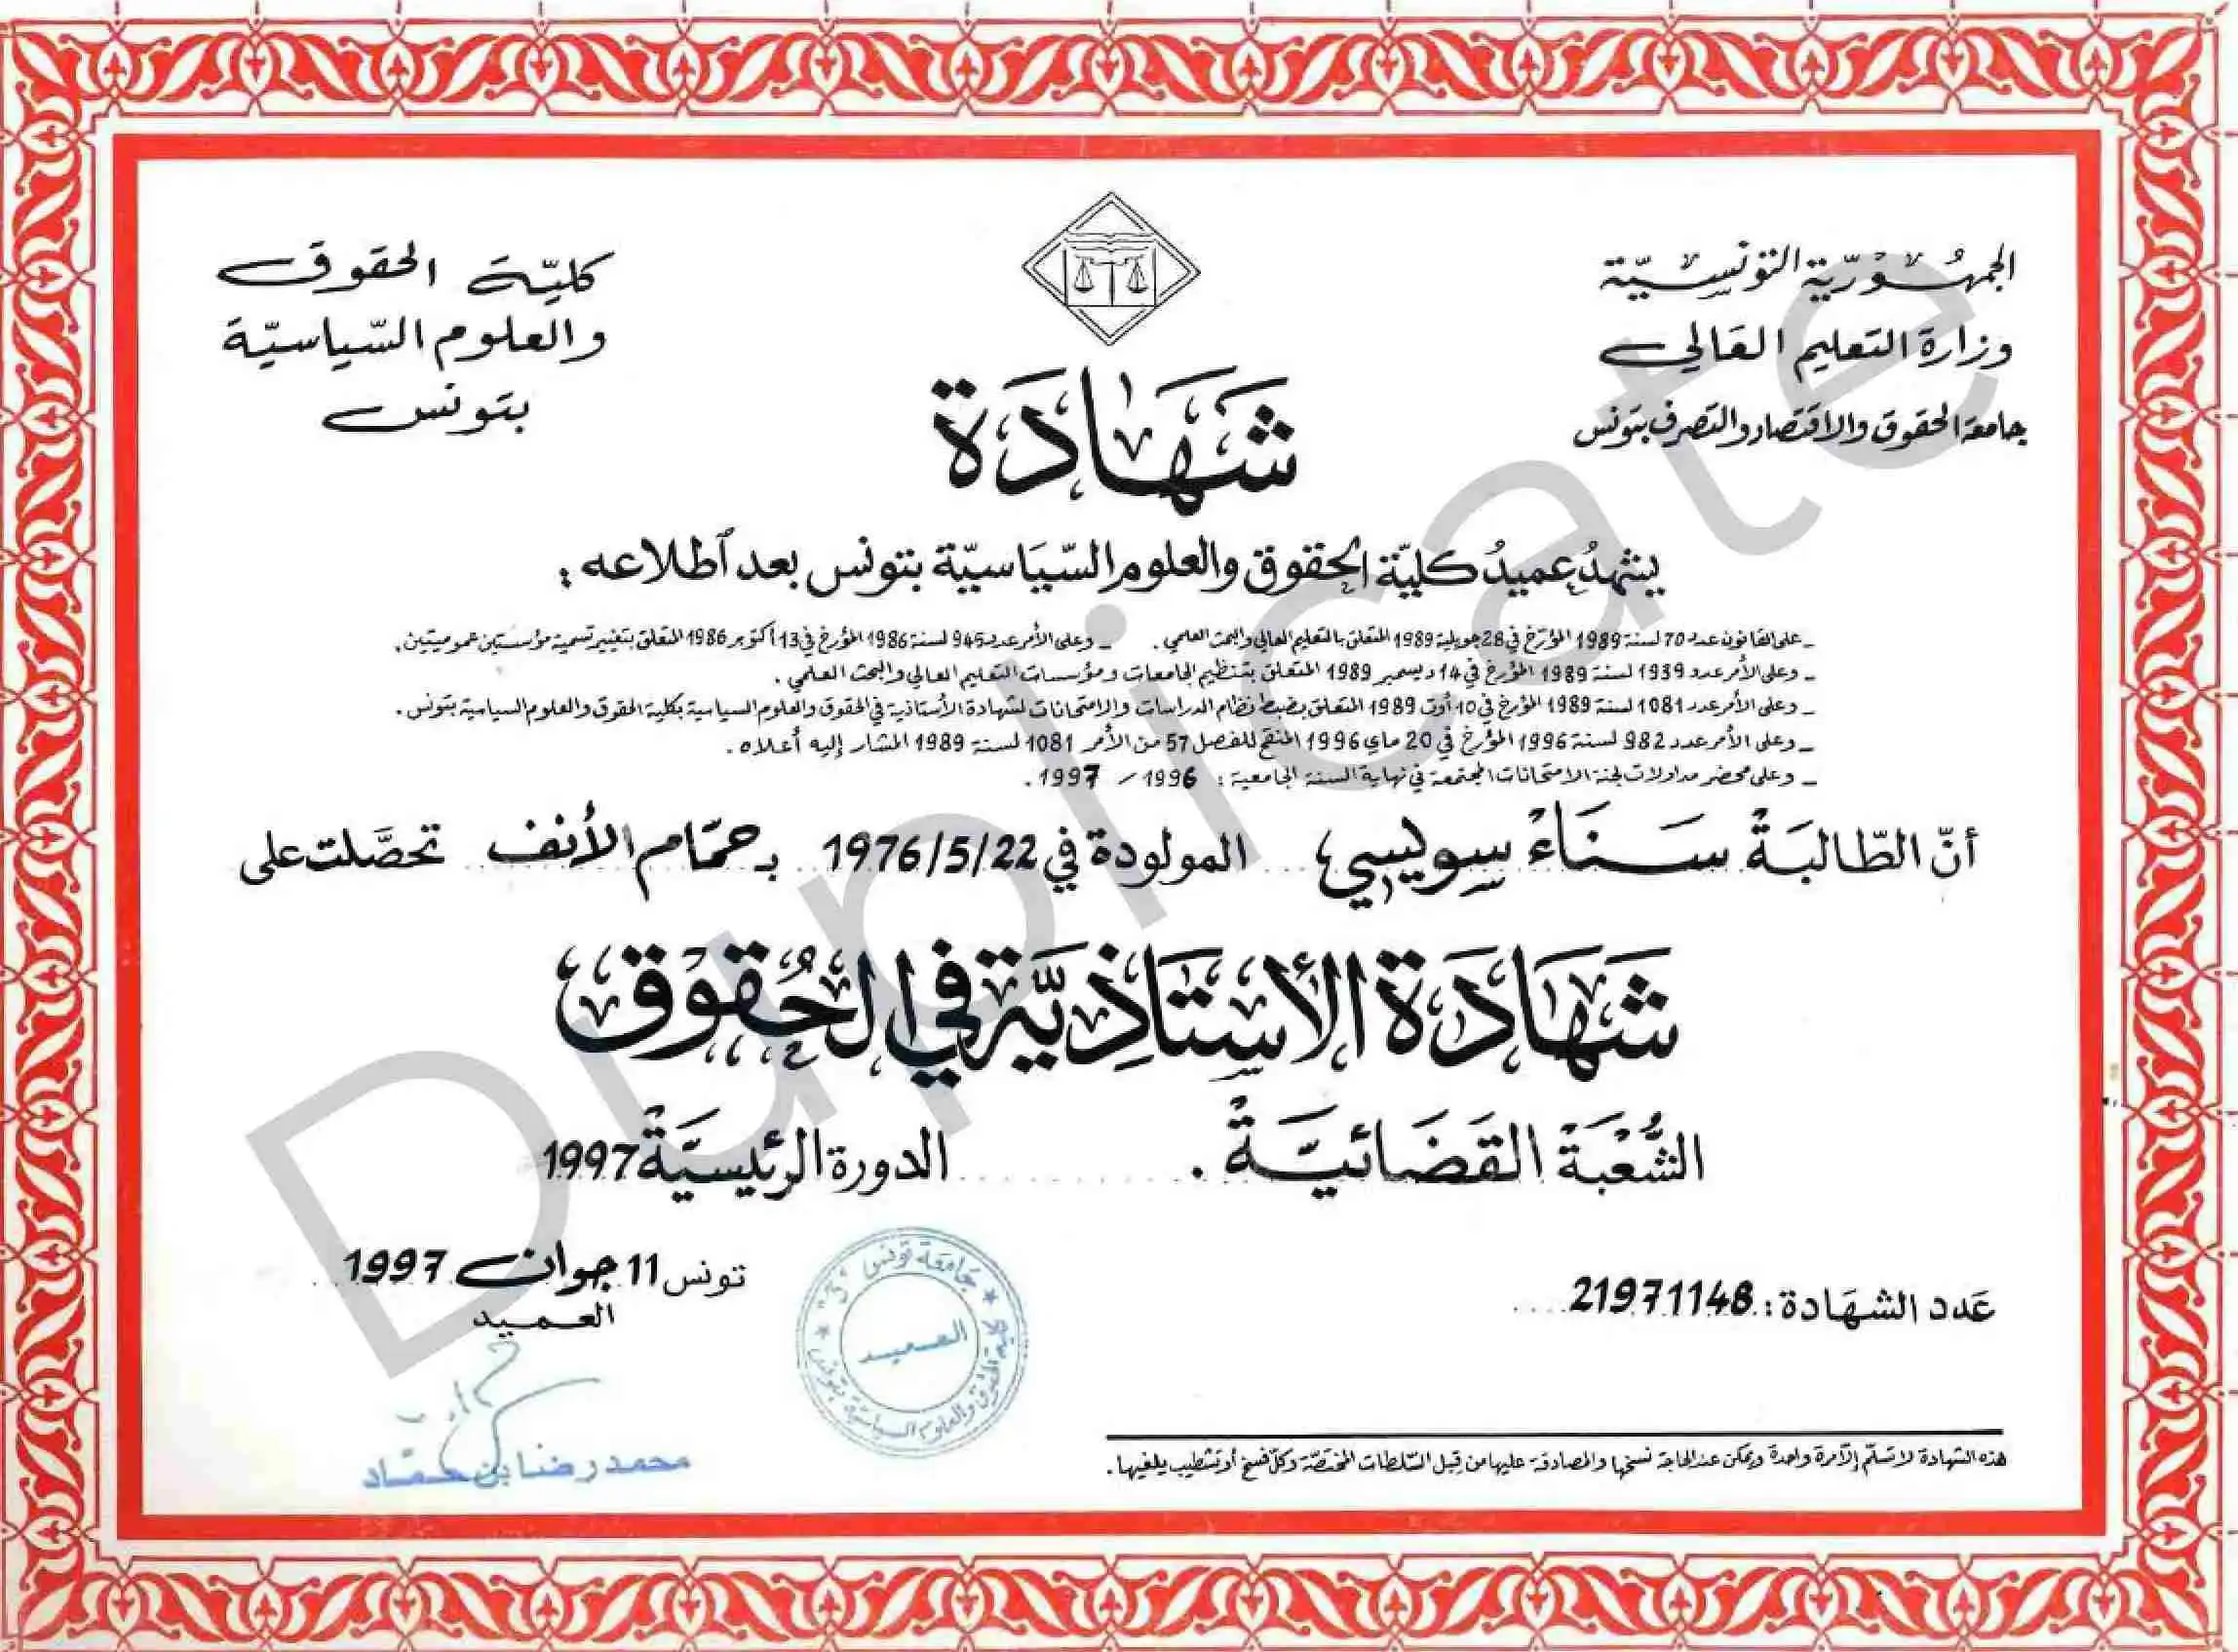 الجمهورية التونسية
وزارة التعليم العالي
جامعة الحقوق والاقتصاد والتصرف بتونس
كليّة الحقوق
والعلوم السّياسيّة
بتونس
شهادة
يشهد عميد كليّة الحقوق والعلوم السّياسيّة بتونس بعد ٱطلاعه :
ـ على القانون عدد 70 لسنة 1989 المؤرّخ في 28 جويلية 1989 المتعلق بالتعليم العالي والبحث العلمي . ـ وعلى الأمر عدد 945 لسنة 1986 المؤرخ في 13 أكتوبر 1986 المتعلق بتغيير تسمية مؤسستين عموميتين .
ـ وعلى الأمر عدد 1939 لسنة 1989 المؤرخ في 14 ديسمبر 1989 المتعلق بتنظيم الجامعات ومؤسسات التعليم العالي والبحث العلمي .
ـ وعلى الأمر عدد 1081 لسنة 1989 المؤرخ في 10 أوت 1989 المتعلق بضبط نظام الدراسات والامتحانات لشهادة الأستاذية في الحقوق والعلوم السياسية بكلية الحقوق والعلوم السياسية بتونس .
ـ وعلى الأمر عدد 982 لسنة 1996 المؤرخ في 20 ماي 1996 المنقح للفصل 57 من الأمر 1081 لسنة 1989 المشار إليه أعلاه .
ـ وعلى محضر مداولات لجنة الامتحانات المجتمعة في نهاية السنة الجامعية : 1996 / 1997 .
أنّ الطّالبة سناء سويسي المولودة في 1976/5/22 بـ حمّام الأنف تحصّلت على
شهادة الأستاذيّة في الحقوق
الشّعبة القضائيّة . الدورة الرئيسيّة 1997
عدد الشهادة : 21971148
تونس 11 جوان 1997
العميد
محمد رضا بن حمّاد
العميد
هذه الشهادة لا تسلّم إلاّ مرة واحدة ويمكن عند الحاجة نسخها والمصادقة عليها من قبل السّلطات المختصّة وكلّ فسخ أو تشطيب يلغيها .
Duplicate